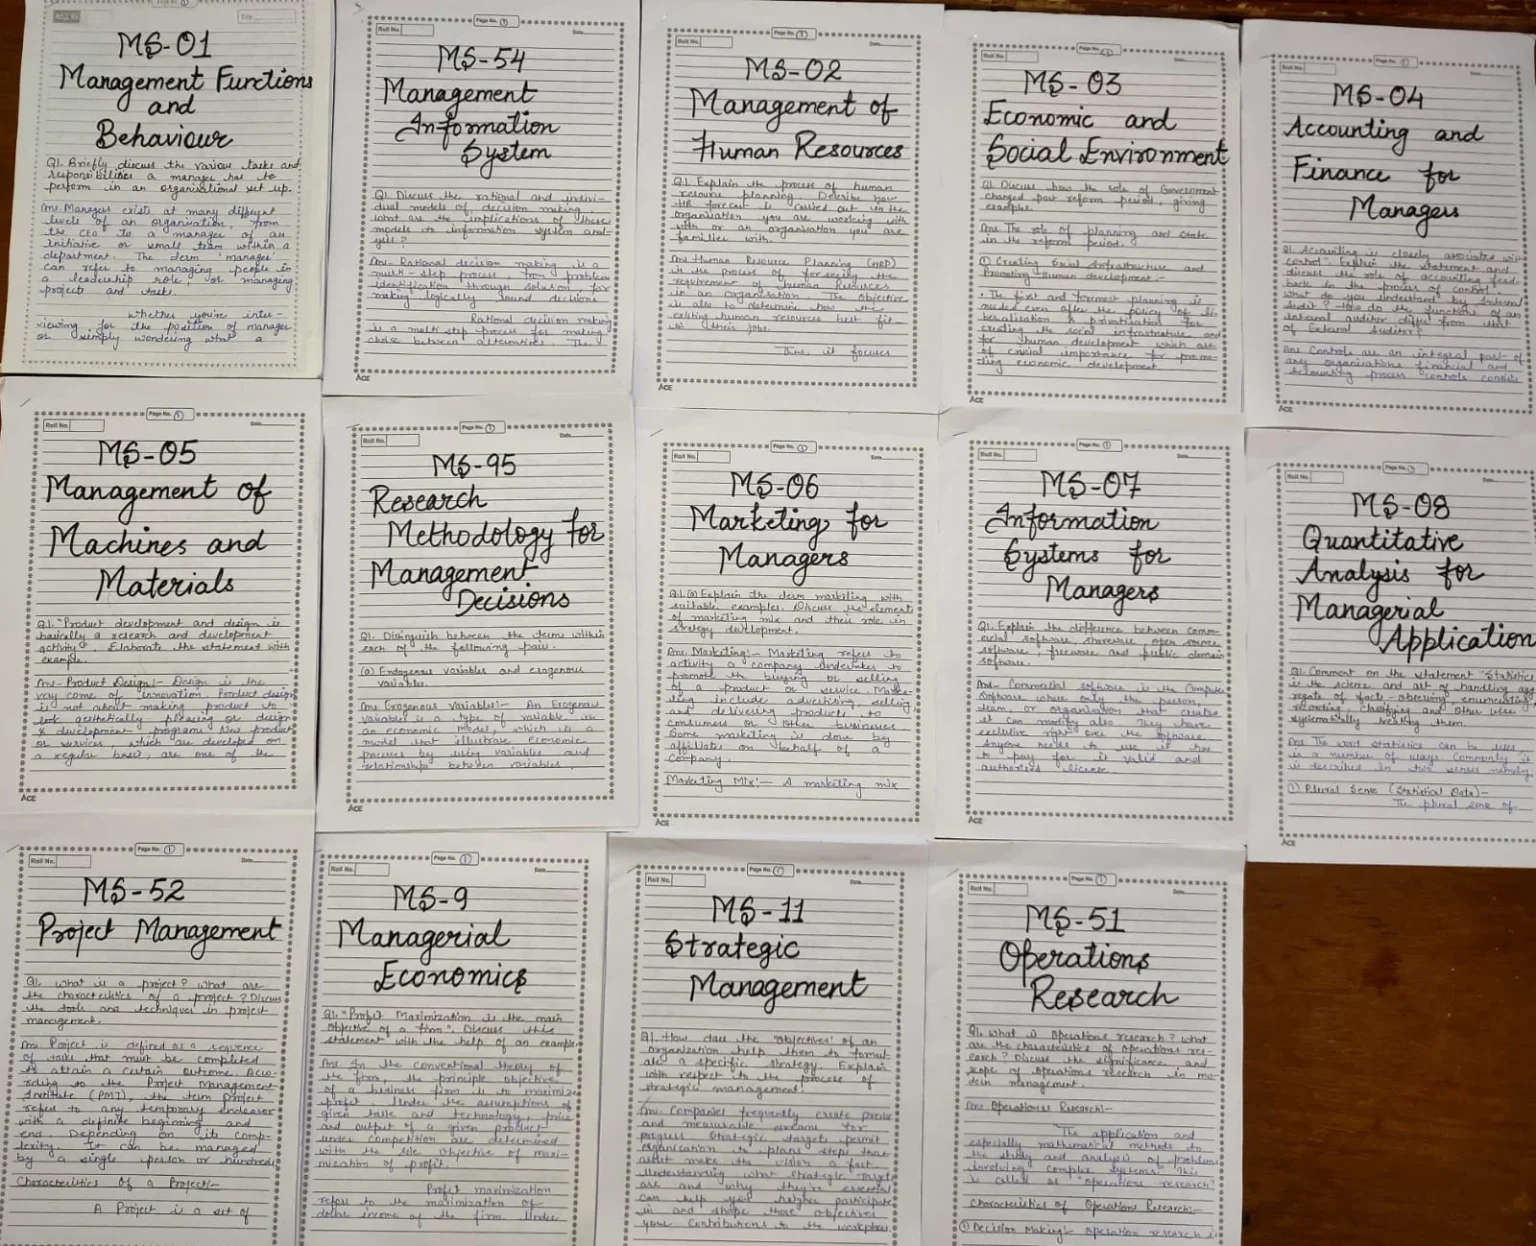 Roll No.
Date
MS-01
Management Functions
and
Behaviour
Q1. Briefly discuss the various tasks and
responsibilities a manager has to
perform in an organisational set up.
Ans. Managers exists at many different
levels of an organisation, from
the CEO to a manager of an
initiative or small team within a
department. The term 'manager'
can refer to managing people in
a leadership role, or managing
project and tasks.
Whether you're inter-
viewing for the position of manager
or simply wondering what a
Roll No.
Page No. 1
Date
MS-54
Management
Information
System
Q1. Discuss the rational and indivi-
dual models of decision making.
What are the implications of these
models to information system anal-
ysis?
Ans:- Rational decision making is a
multi-step process, from problem
identification through solution, for
making logically sound decisions
Rational decision making
is a multi step process for making
choice between alternatives. The
ACE
Roll No.
Page No. 1
Date
MS-02
Management of
Human Resources
Q1. Explain the process of human
resource planning. Describe how
HR forecast is carried out in the
organisation you are working with
with or an organisation you are
families with.
Ans:- Human Resource Planning (HRP)
is the process of forseeing the
requirement of human Resources
in an organisation. The objective
is also to determine how the
existing human resources best fit
in their jobs.
Thus, it focuses
ACE
Roll No.
Page No. 1
Date
MS-03
Economic and
Social Environment
Q1. Discuss how the role of Government
changed post reform period, giving
examples.
Ans. The role of planning and state
in the reform period.
① Creating Social Infrastructure and
Promoting Human development:-
• The first and foremost planning is
needed even after the policy of li-
beralisation & privatisation for
creating the social infrastructure
for human development which are
of crucial importance for promo-
ting economic development
ACE
Roll No.
Page No. 1
Date
MS-04
Accounting and
Finance for
Managers
Q1. Accounting is closely associated with
control". Explain the statement and
discuss the role of accounting feed-
back in the process of control.
What do you understand by Internal
Audit? How do the functions of an
internal auditor differ from that
of External Auditor?
Ans. Controls are an integral part of
any organisations financial and
Accounting process controls consists
ACE
Roll No.
Page No. 1
Date
MS-05
Management of
Machines and
Materials
Q.1. "Product development and design is
basically a research and development
activity". Elaborate the statement with
example.
Ans:- Product Design:- Design is the
very come of innovation. Product design
is not about making product to
look aesthetically pleasing or design
& development programs. New product
or services, which are developed on
a regular basis, are one of the
ACE
Roll No.
Page No. 1
Date
MS-95
Research
Methodology for
Management
Decisions
Q1. Distinguish between the terms within
each of the following pair.
(a) Endogenous variables and exogenous
variables.
Ans Exogenous Variables:- An Exogenous
variables is a type of variable in
an economic model, which is a
model that illustrate economic
process by using variables and
relationships between variables.
ACE
Roll No.
Page No. 1
Date
MS-06
Marketing for
Managers
Q.1.(a) Explain the term marketing with
suitable examples. Discuss the elements
of marketing mix and their role in
strategy development.
Ans:- Marketing:- Marketing refers to
activity a company undertakes to
promote the buying or selling
of a product or service. Marke-
ting include advertising, selling
and delivering products to
consumers or other businesses
Some marketing is done by
affiliates on behalf of a
company.
Marketing Mix:- A marketing mix
ACE
Roll No.
Page No. 1
Date
MS-07
Information
Systems for
Managers
Q1. Explain the difference between comm-
ercial software, shareware, open source
software, freeware and public domain
software.
Ans:- Commercial software is the Computer
Software where only the person,
team, or organisation that creates
it can modify also. They have
exclusive right over the software
Anyone needs to use it has
to pay for it valid and
authorised license.
ACE
Roll No.
Page No. 1
MS-08
Quantitative
Analysis for
Managerial
Application
Q1. Comment on the statement "Statistics
is the science and art of handling agg-
regate of facts - observing, enumerating,
recording, classifying and other wise
systematically treating them.
Ans The word statistics can be used
in a number of ways. Commonly it
is described in two senses namely
① Plural Sense (Statistical Data)-
The plural sense of
ACE
Roll No.
Page No. 1
Date
MS-52
Project Management
Q1. What is a project? What are
the characteristics of a project? Discuss
the tools and techniques in project
management.
Ans Project is defined as a sequence
of tasks that must be completed
to attain a certain outcome. Acco-
rding to the Project Management
Institute (PMI), the term Project
refers to any temporary endeavor
with a definite beginning and
end. Depending on its comp-
lexity. It can be managed
by a single person or hundreds
Characteristics Of a Project:-
A Project is a set of
Roll No.
Page No. 1
Date
MS-9
Managerial
Economics
Q1. "Profit Maximization is the main
objective of a firm". Discuss this
statement with the help of an example.
Ans In the conventional theory of
the firm, the principle objective
of a business firm is to maximize
profit. Under the assumptions of
given taste and technology, price
and output of a given product
under competition are determined
with the sole objective of maxi-
mization of profit.
Profit maximization
refers to the maximization of
dollar income of the firm. Under
Roll No.
Page No. 1
Date
MS-11
Strategic
Management
Q1. How does the 'objectives' of an
organization help them to formul-
ate a specific strategy. Explain
with respect to the process of
strategic management.
Ans. Companies frequently create precise
and measurable for
progress. Strategic targets permit
organisation to plans steps that
make the vision a fact
Understanding what strategic targets
are and why they're essential
can help you higher participate
in and shape those objectives
your contributions to the workplace.
Roll No.
Page No. 1
Date
MS-51
Operations
Research
Q1. What is operations research? What
are the characteristics of operations res-
earch? Discuss the significance, and
scope of operations research in mo-
dern management.
Ans: Operations Research:-
The application and
especially mathematical methods to
the study and analysis of problems
involving complex systems. This
is called as 'operations research'
Characteristics of Operations Research:-
① Decision Making:- Operation research is